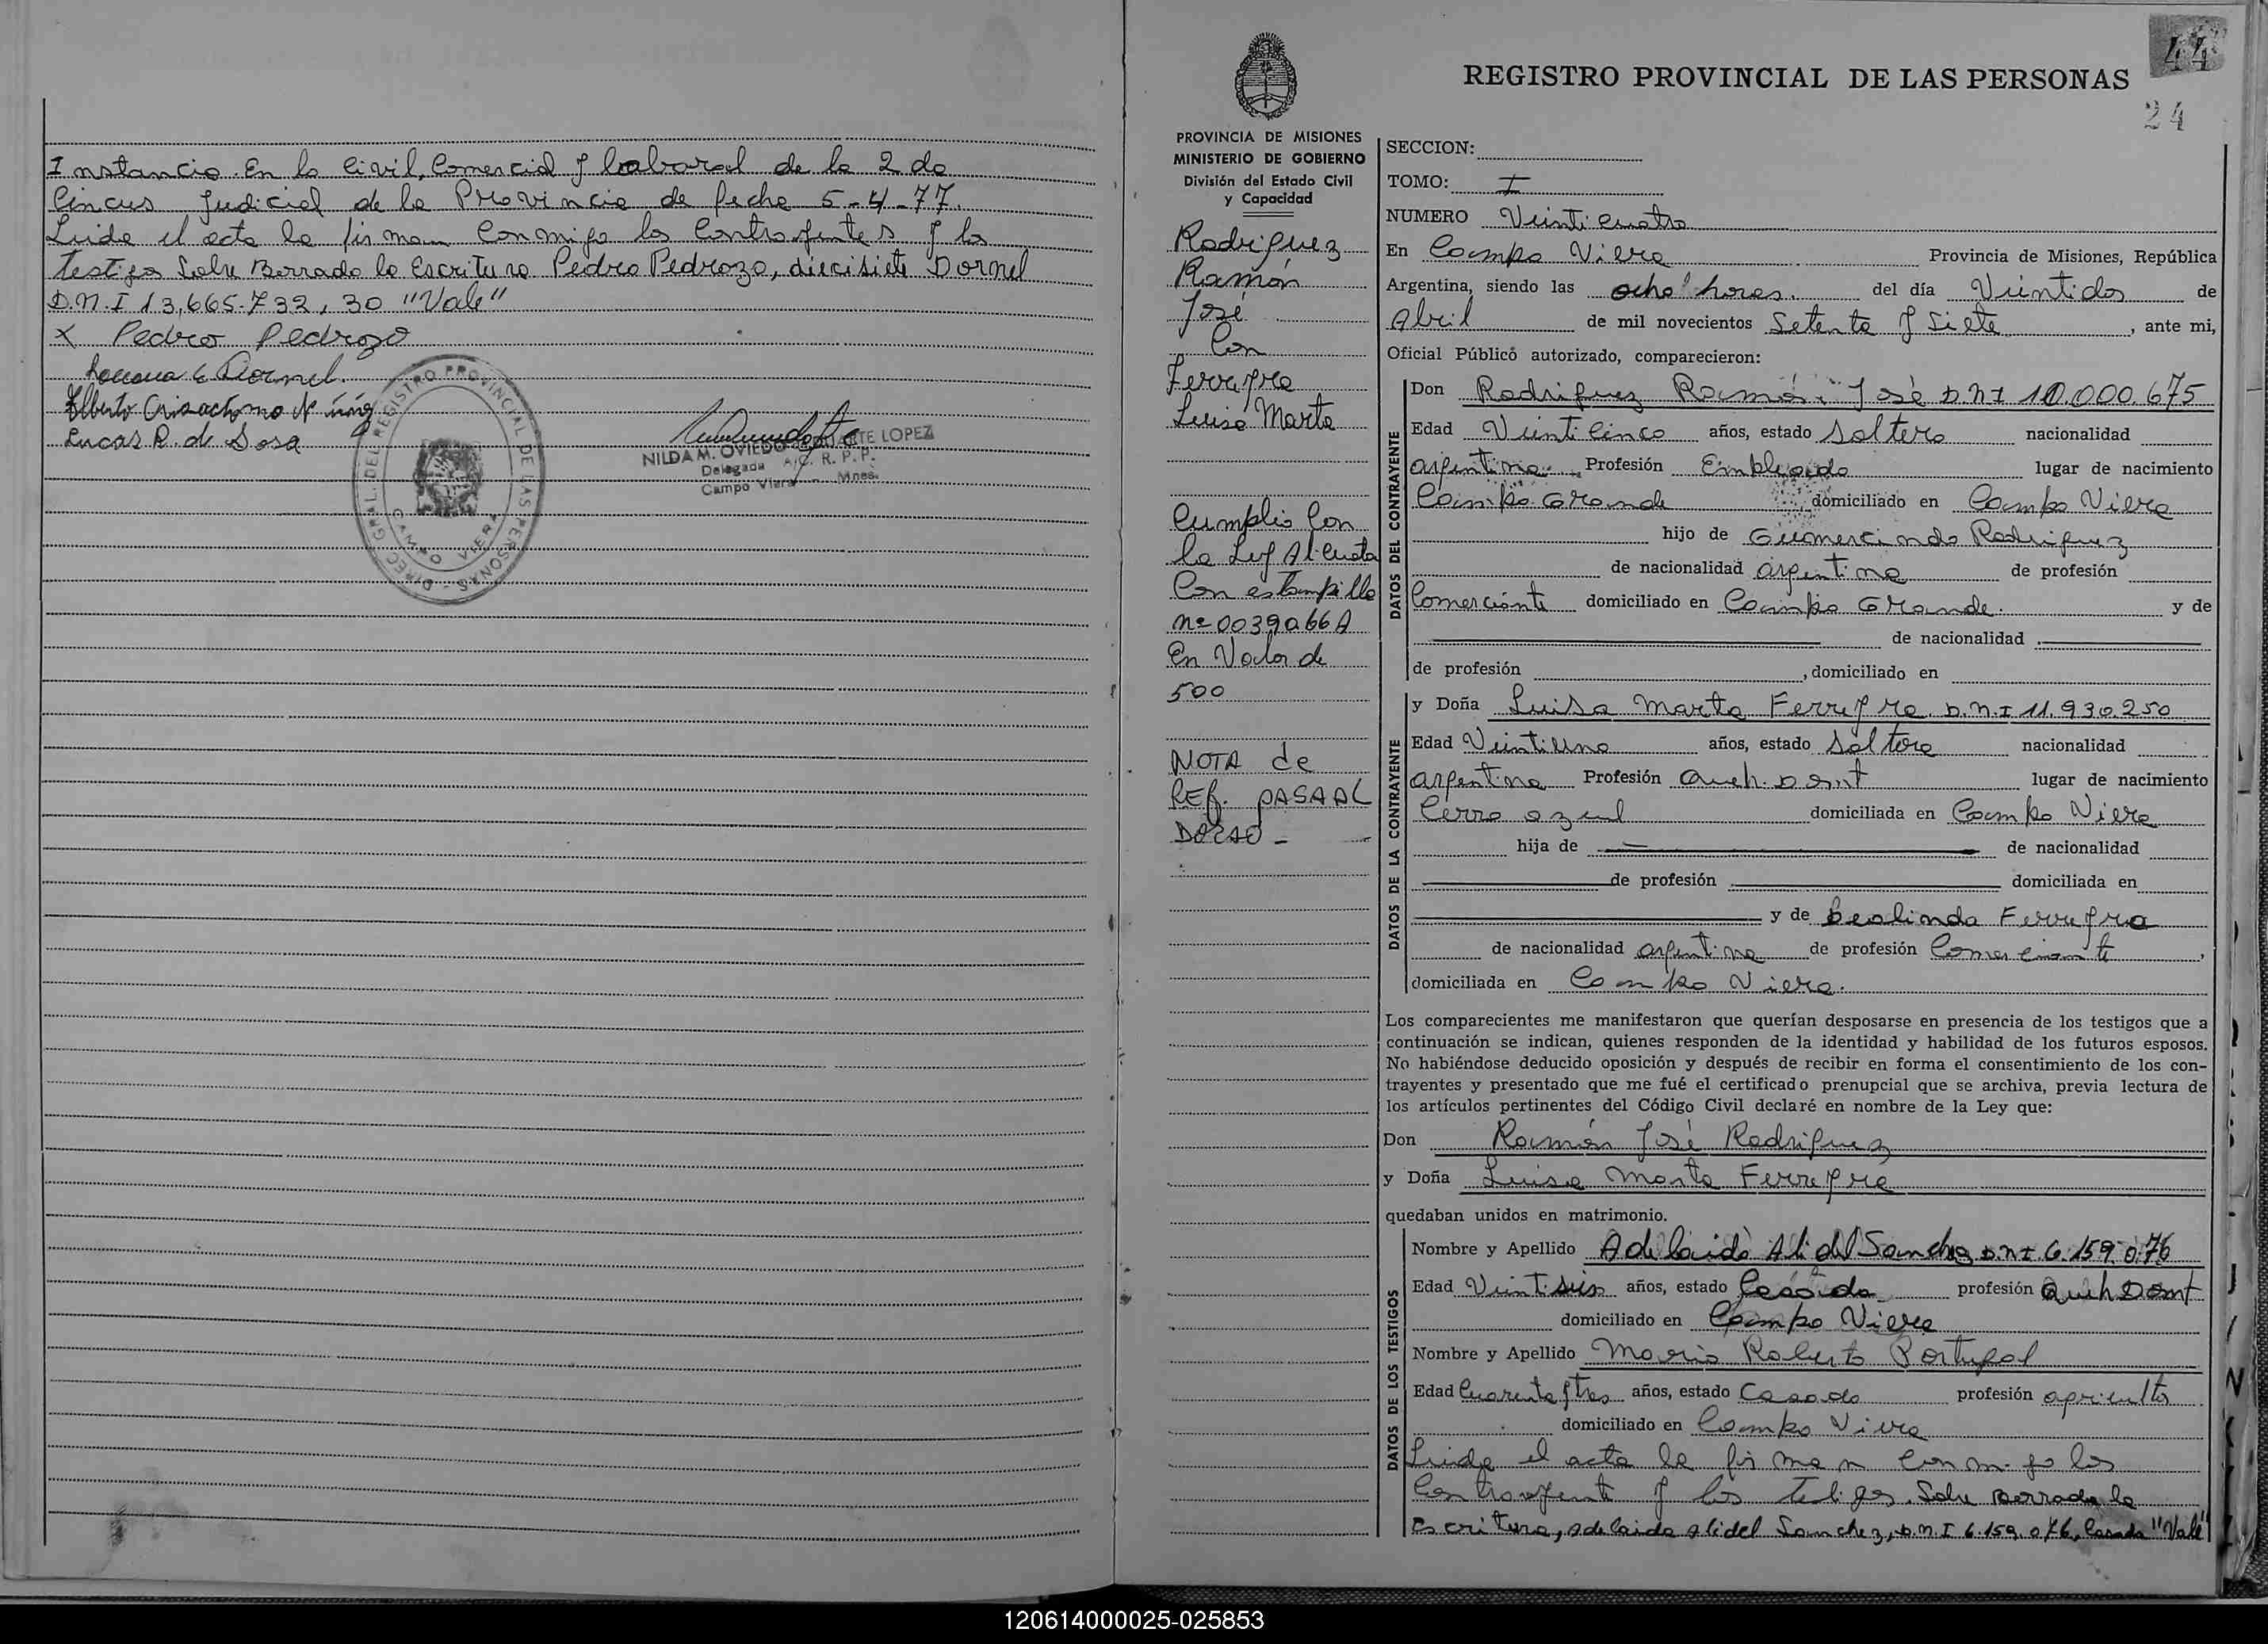 Instancia En lo Civil, Comercial y Laboral de la 2 da
Circus Judicial de la Provincia de fecha 5-4-77.
Leida el acta la firman Conmigo los Contrayentes y los
testigos Sobre Borrado la Escritura Pedro Pedrozo, diecisiete Dornel
D.N.I 13.665.732, 30 "Vale"
x Pedro Pedrozo
Dornel.
Lucas R. de Sosa
DIREC. GRAL. DEL REGISTRO PROVINCIAL DE LAS PERSONAS
CAMPO VIERA
NILDA M. OVIEDO DUARTE LOPEZ
Delegada A/C. R. P. P.
Campo Viera - Mnes.
44
REGISTRO PROVINCIAL DE LAS PERSONAS
24
PROVINCIA DE MISIONES
MINISTERIO DE GOBIERNO
División del Estado Civil
y Capacidad
Rodriguez
Ramón
José
Con
Ferreyra
Luisa Marta
Cumplio Con
la Ley Al. Cuota
Con estampilla
nº 0039066A
En Valor de
500
NOTA de
REf. PASA AL
DORSO -
SECCION:
TOMO: I
NUMERO Veinticuatro
En Campo Viera Provincia de Misiones, República
Argentina, siendo las ocho horas. del día Veintidos de
Abril de mil novecientos Setenta y Siete, ante mi,
Oficial Público autorizado, comparecieron:
DATOS DEL CONTRAYENTE
Don Rodriguez Ramón José D.N.I 10.000.675
Edad Veinticinco años, estado Soltero nacionalidad
argentina Profesión Empleado lugar de nacimiento
Campo Grande domiciliado en Campo Viera
hijo de Gumercindo Rodriguez
de nacionalidad argentina de profesión
Comerciante domiciliado en Campo Grande. y de
de nacionalidad
de profesión , domiciliado en
DATOS DE LA CONTRAYENTE
y Doña Luisa Marta Ferreyra D.N.I 11.930.250
Edad Veintiuno años, estado Soltera nacionalidad
argentina Profesión Queh. Domt lugar de nacimiento
Cerro azul domiciliada en Campo Viera
hija de de nacionalidad
de profesión domiciliada en
y de Lealinda Ferreyra
de nacionalidad argentina de profesión Comerciante,
domiciliada en Campo Viera.
Los comparecientes me manifestaron que querían desposarse en presencia de los testigos que a
continuación se indican, quienes responden de la identidad y habilidad de los futuros esposos.
No habiéndose deducido oposición y después de recibir en forma el consentimiento de los con-
trayentes y presentado que me fué el certificado prenupcial que se archiva, previa lectura de
los artículos pertinentes del Código Civil declaré en nombre de la Ley que:
Don Ramón José Rodriguez
y Doña Luisa Marta Ferreyra
quedaban unidos en matrimonio.
DATOS DE LOS TESTIGOS
Nombre y Apellido Adelaida Alidel Sanchez D.N.I 6.159.076
Edad Veintiseis años, estado Casada profesión Queh Domt
domiciliado en Campo Viera
Nombre y Apellido Mario Roberto Portugal
Edad Cuarenta y tres años, estado Casado profesión agricultor
domiciliado en Campo Viera
Leida el acta la firman Conmigo los
Contrayente y los testigos. Sobre Borrado la
Escritura, Adelaida Alidel Sanchez, D.N.I 6.159.076, Casada "Vale"
120614000025-025853